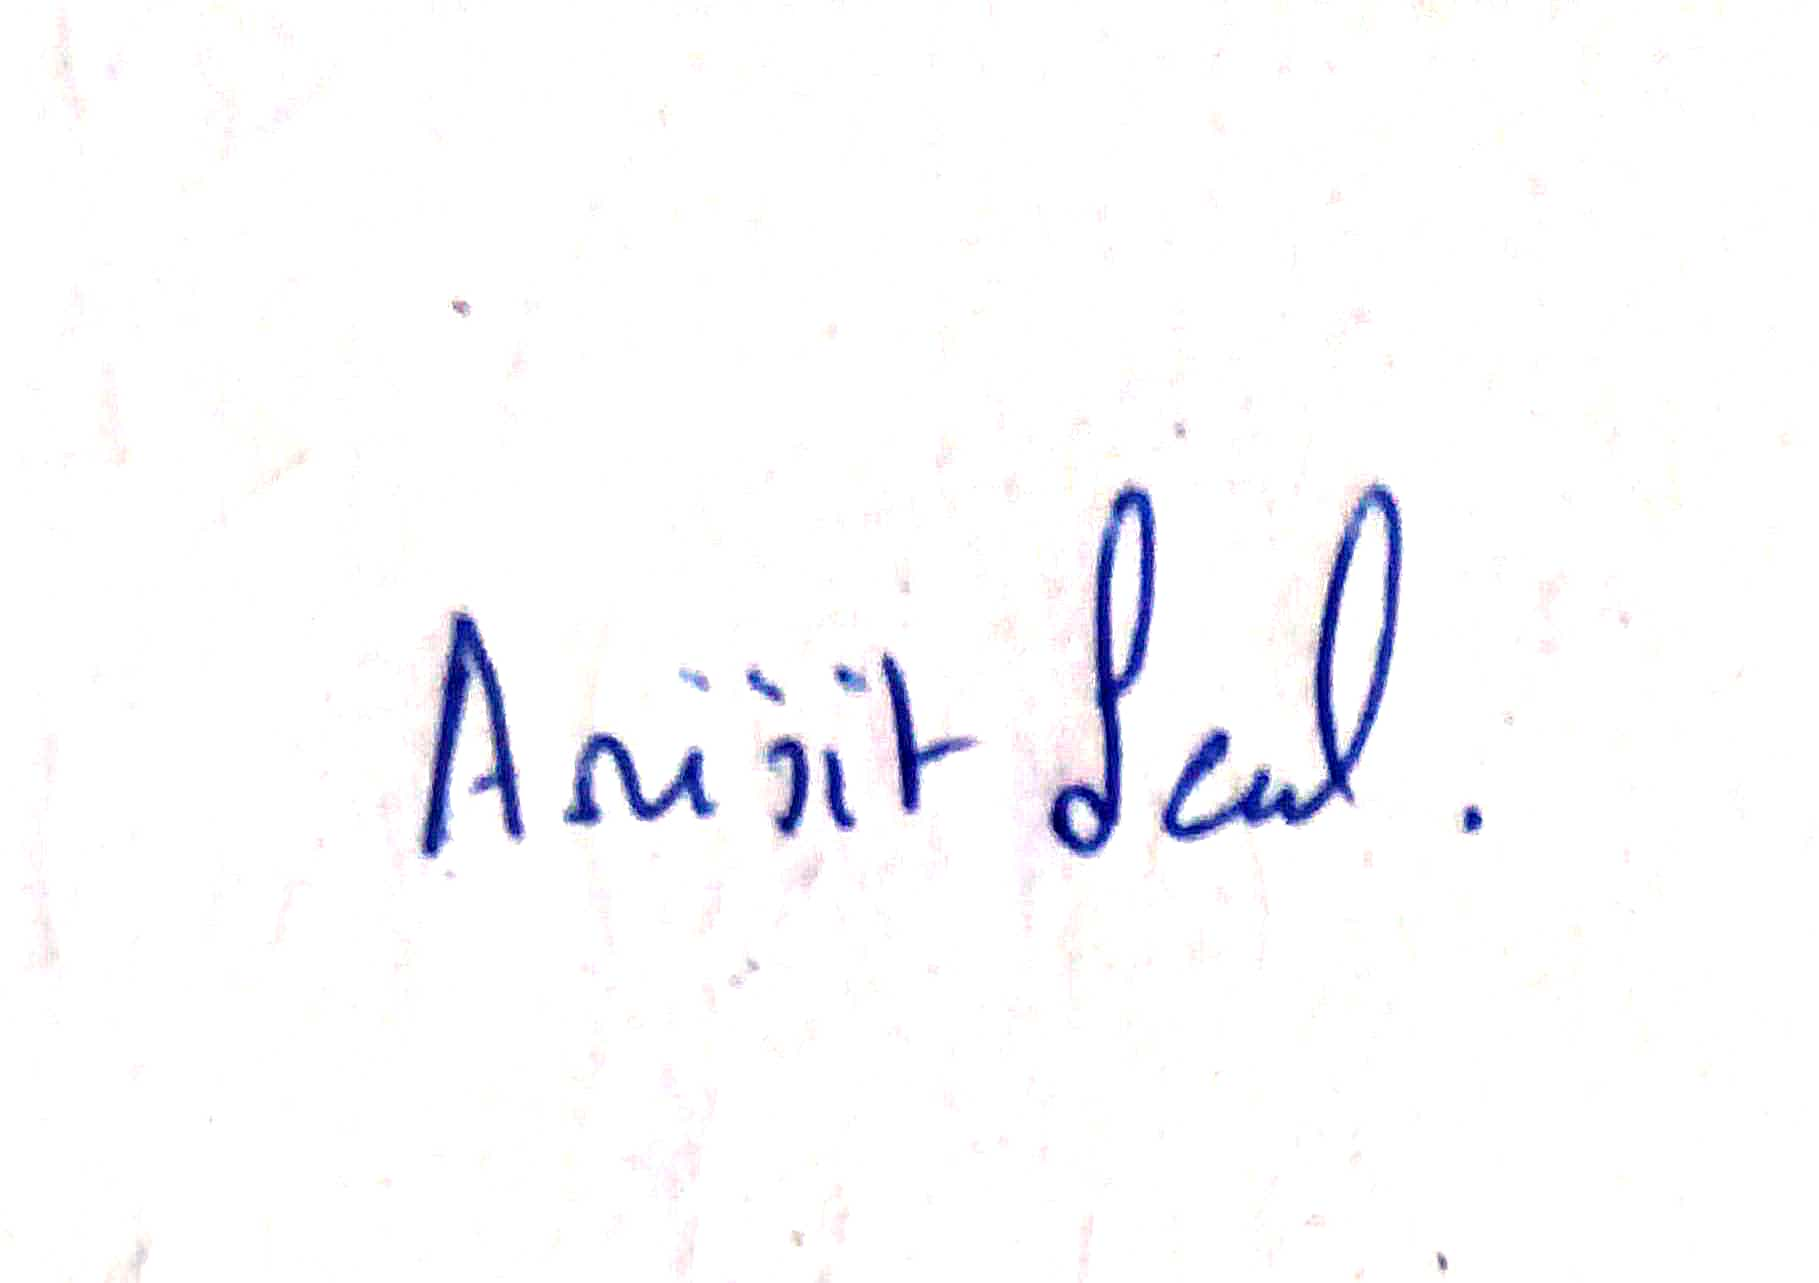 Arijit Seal.